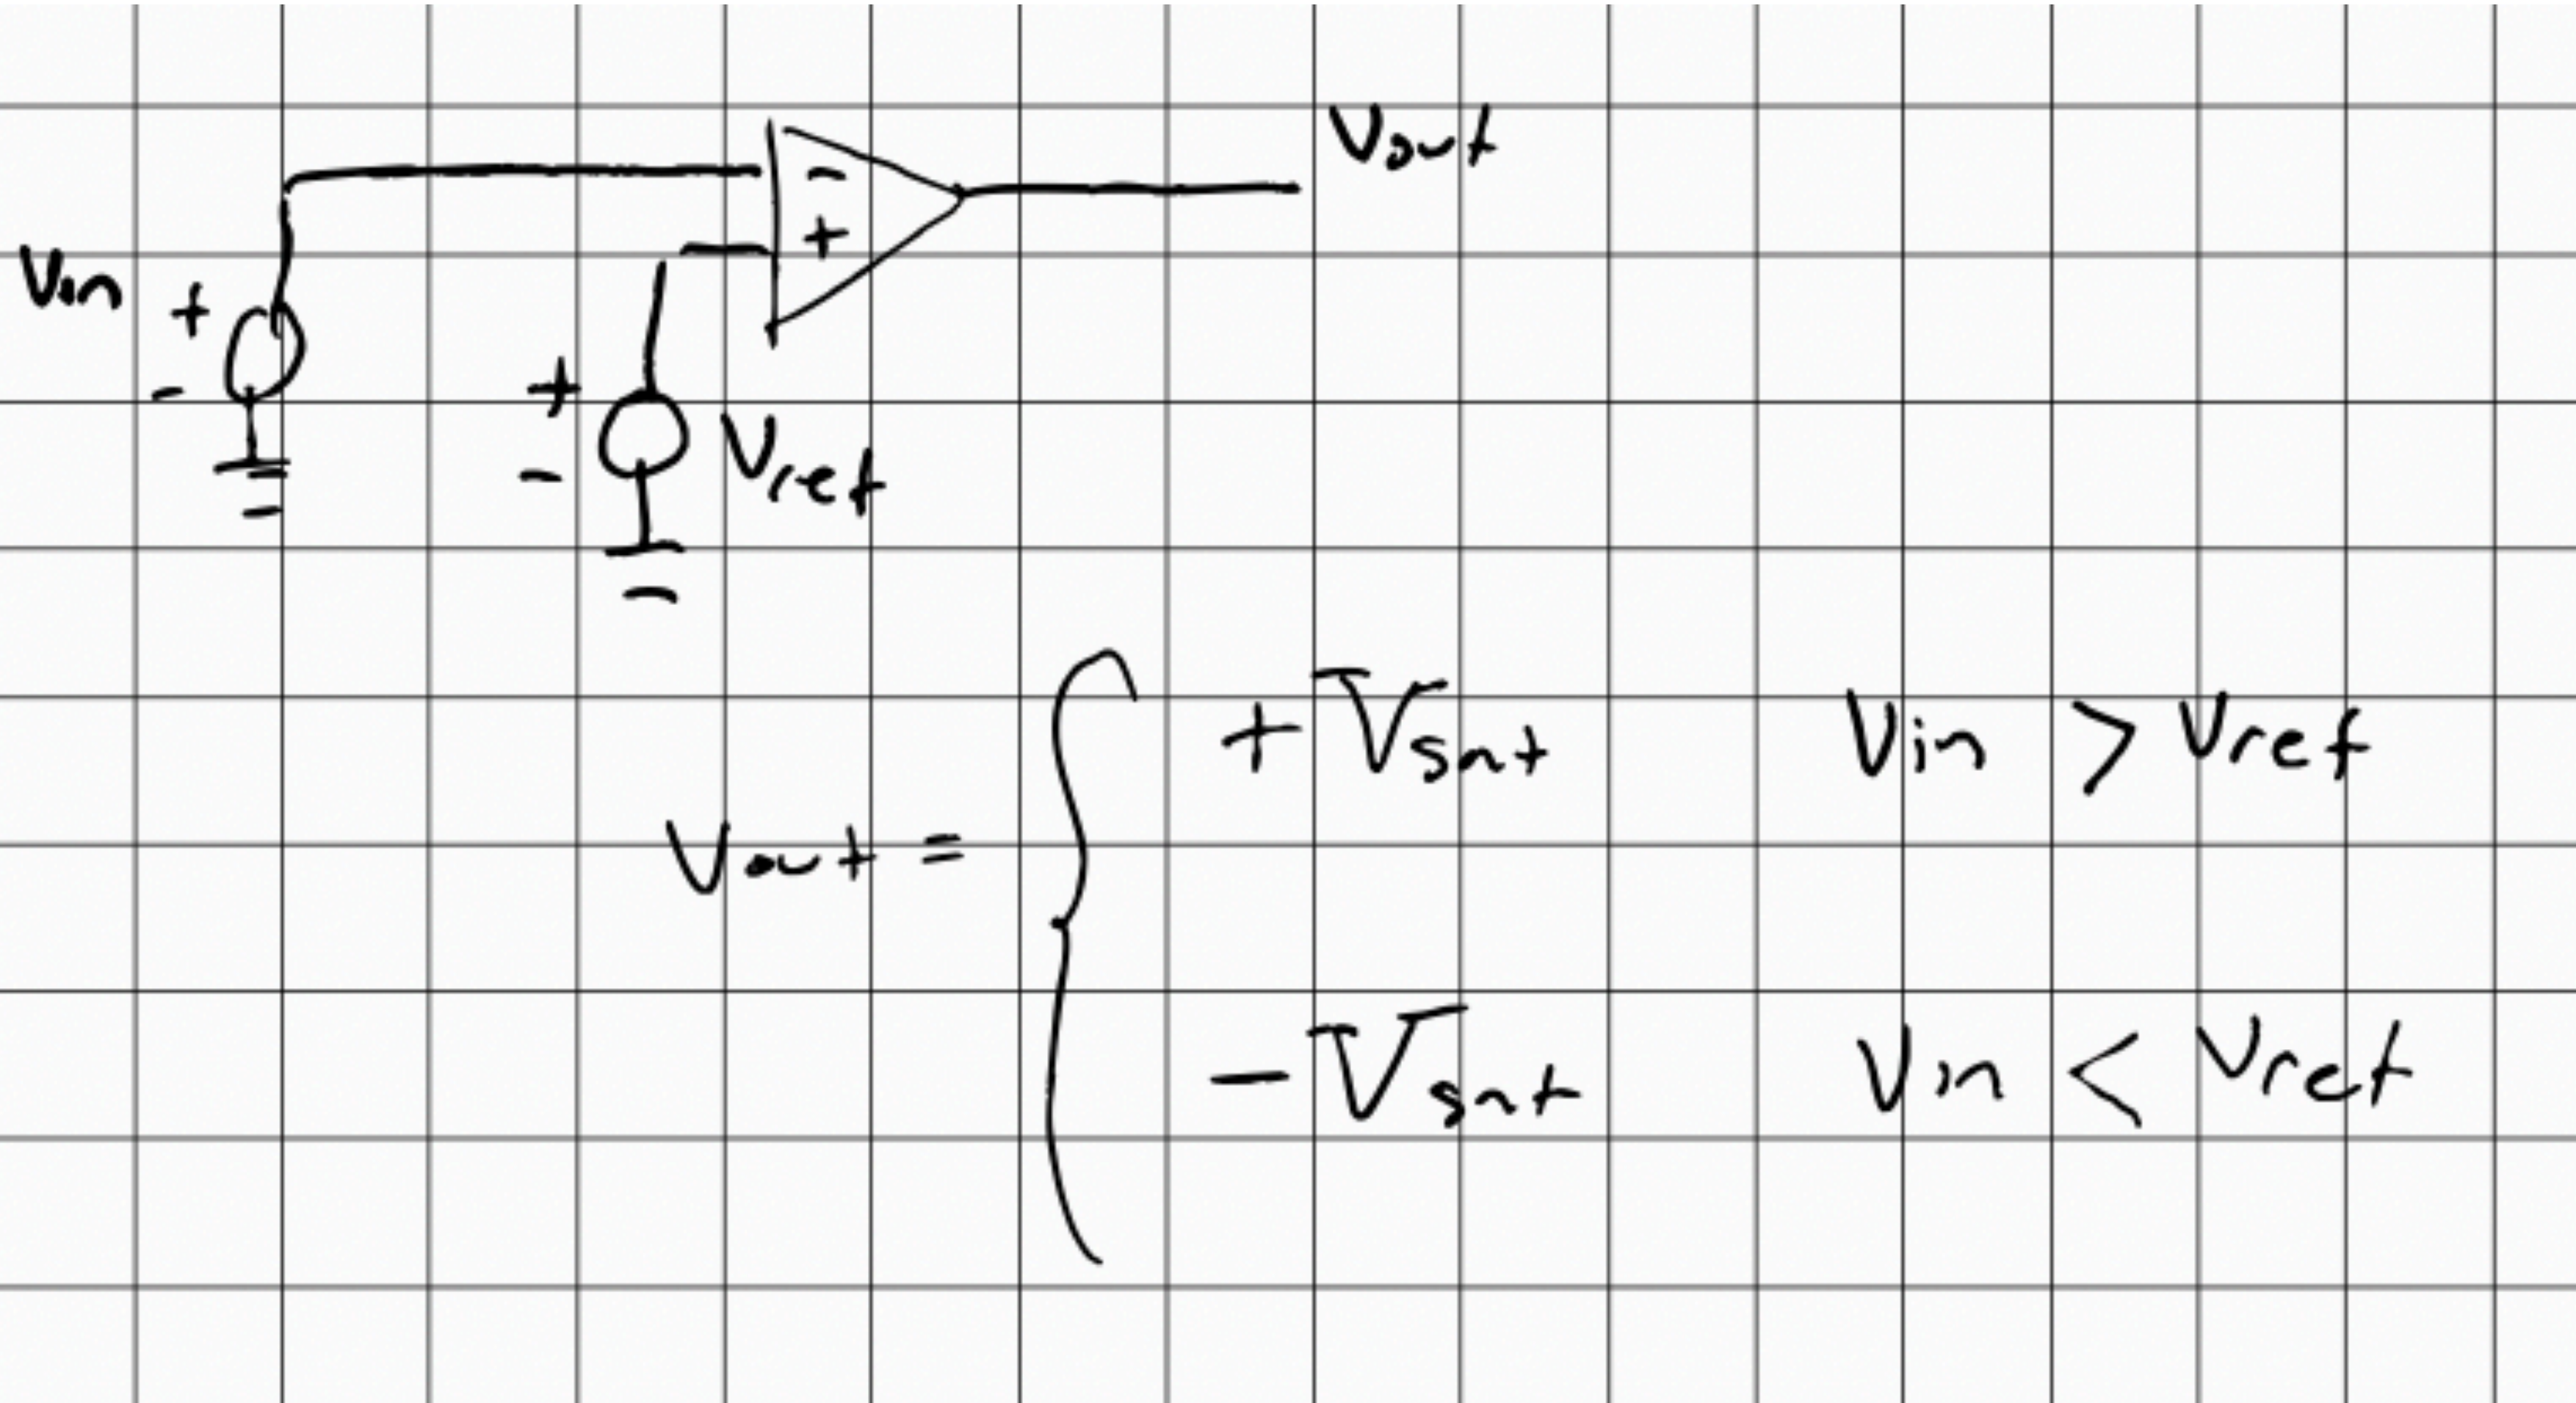 Vout
- +
Vin + -
+ - Vref
Vout = { +Vsat Vin > Vref
-Vsat Vin < Vref